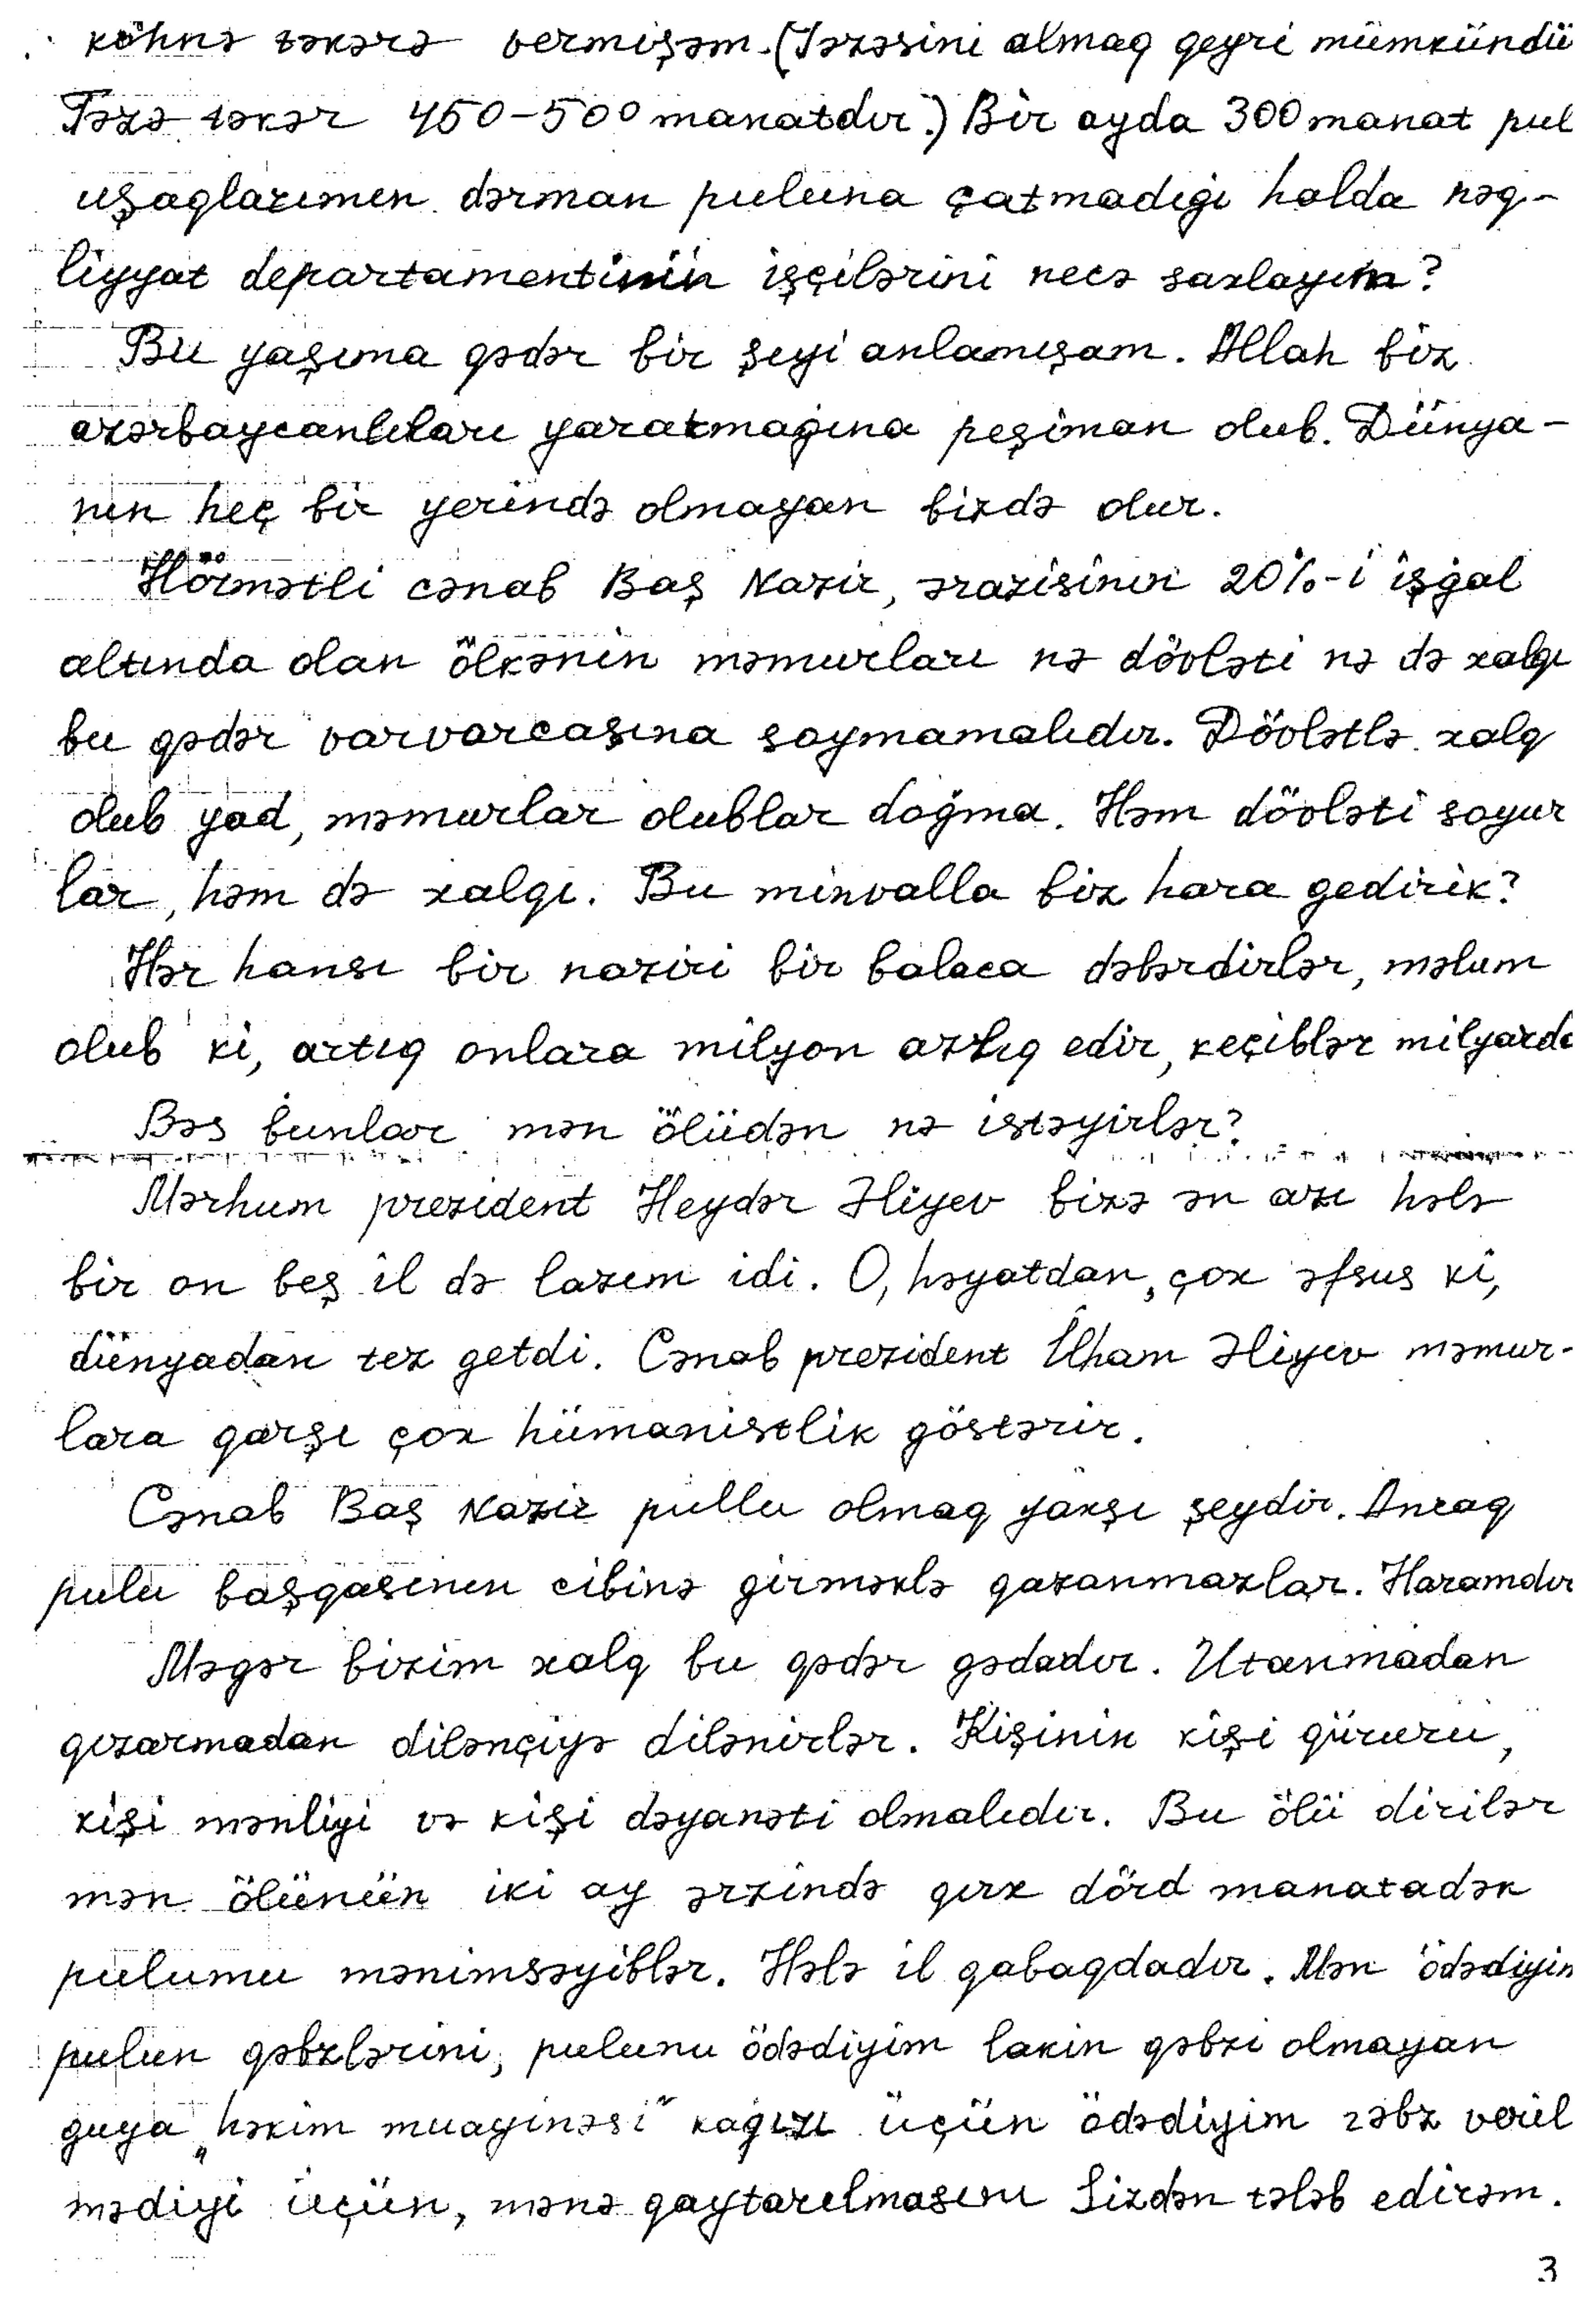 köhnə təkərə vermişəm. (Təzəsini almaq qeyri mümkündü
Təzə təkər 450-500 manatdır.) Bir ayda 300 manat pul
uşaqlarımın dərman puluna çatmadığı halda nəq-
liyyat departamentinin işçilərini necə saxlayım?
Bu yaşıma qədər bir şeyi anlamışam. Allah biz
azərbaycanlıları yaratmağına peşiman olub. Dünya-
nın heç bir yerində olmayan bizdə olur.
Hörmətli cənab Baş Nazir, ərazisinin 20%-i işğal
altında olan ölkənin məmurları nə dövləti nə də xalqı
bu qədər varvarcasına soymamalıdır. Dövlətlə xalq
olub yad, məmurlar olublar doğma. Həm dövləti soyur
lar, həm də xalqı. Bu minvalla biz hara gedirik?
Hər hansı bir naziri bir balaca dəbərdirlər, məlum
olub ki, artıq onlara milyon azlıq edir, keçiblər milyarda
Bəs bunlar mən ölüdən nə istəyirlər?
Mərhum prezident Heydər Əliyev bizə ən azı hələ
bir on beş il də lazım idi. O, həyatdan, çox əfsus ki,
dünyadan tez getdi. Cənab prezident İlham Əliyev məmur-
lara qarşı çox hümanistlik göstərir.
Cənab Baş Nazir pullu olmaq yaxşı şeydir. Ancaq
pulu başqasının cibinə girməklə qazanmazlar. Haramdır
Məgər bizim xalq bu qədər gədadır. Utanmadan
qızarmadan dilənçiyə dilənirlər. Kişinin kişi qüruru,
kişi mənliyi və kişi dəyanəti olmalıdır. Bu ölü dirilər
mən ölünün iki ay ərzində qırx dörd manatadək
pulumu mənimsəyiblər. Hələ il qabaqdadır. Mən ödədiyim
pulun qəbzlərini, pulunu ödədiyim lakin qəbzi olmayan
guya „həkim muayinəsi" kağızı üçün ödədiyim qəbz veril
mədiyi üçün, mənə qaytarılmasını Sizdən tələb edirəm.
3